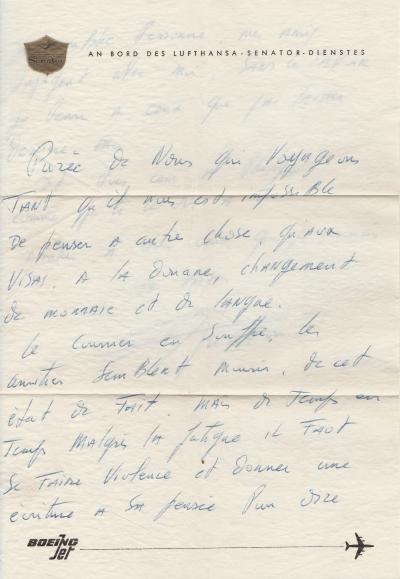 Senator
AN BORD DES LUFTHANSA-SENATOR-DIENSTES
de Nous qui Voyageons
TANT qu'il nous est impossible
De penser A autre chose, qu'aux
VISAS. A la Douane, changement
de monnaie et de langue.
Le Courrier en Souffre, les
amitiés semblent Mourir, de cet
état de FAIT. MAIS de Temps en
Temps Malgré la fatigue il FAUT
Se FAIRE Violence et donner une
écriture A SA pensée Pour dire
BOEING
Jet